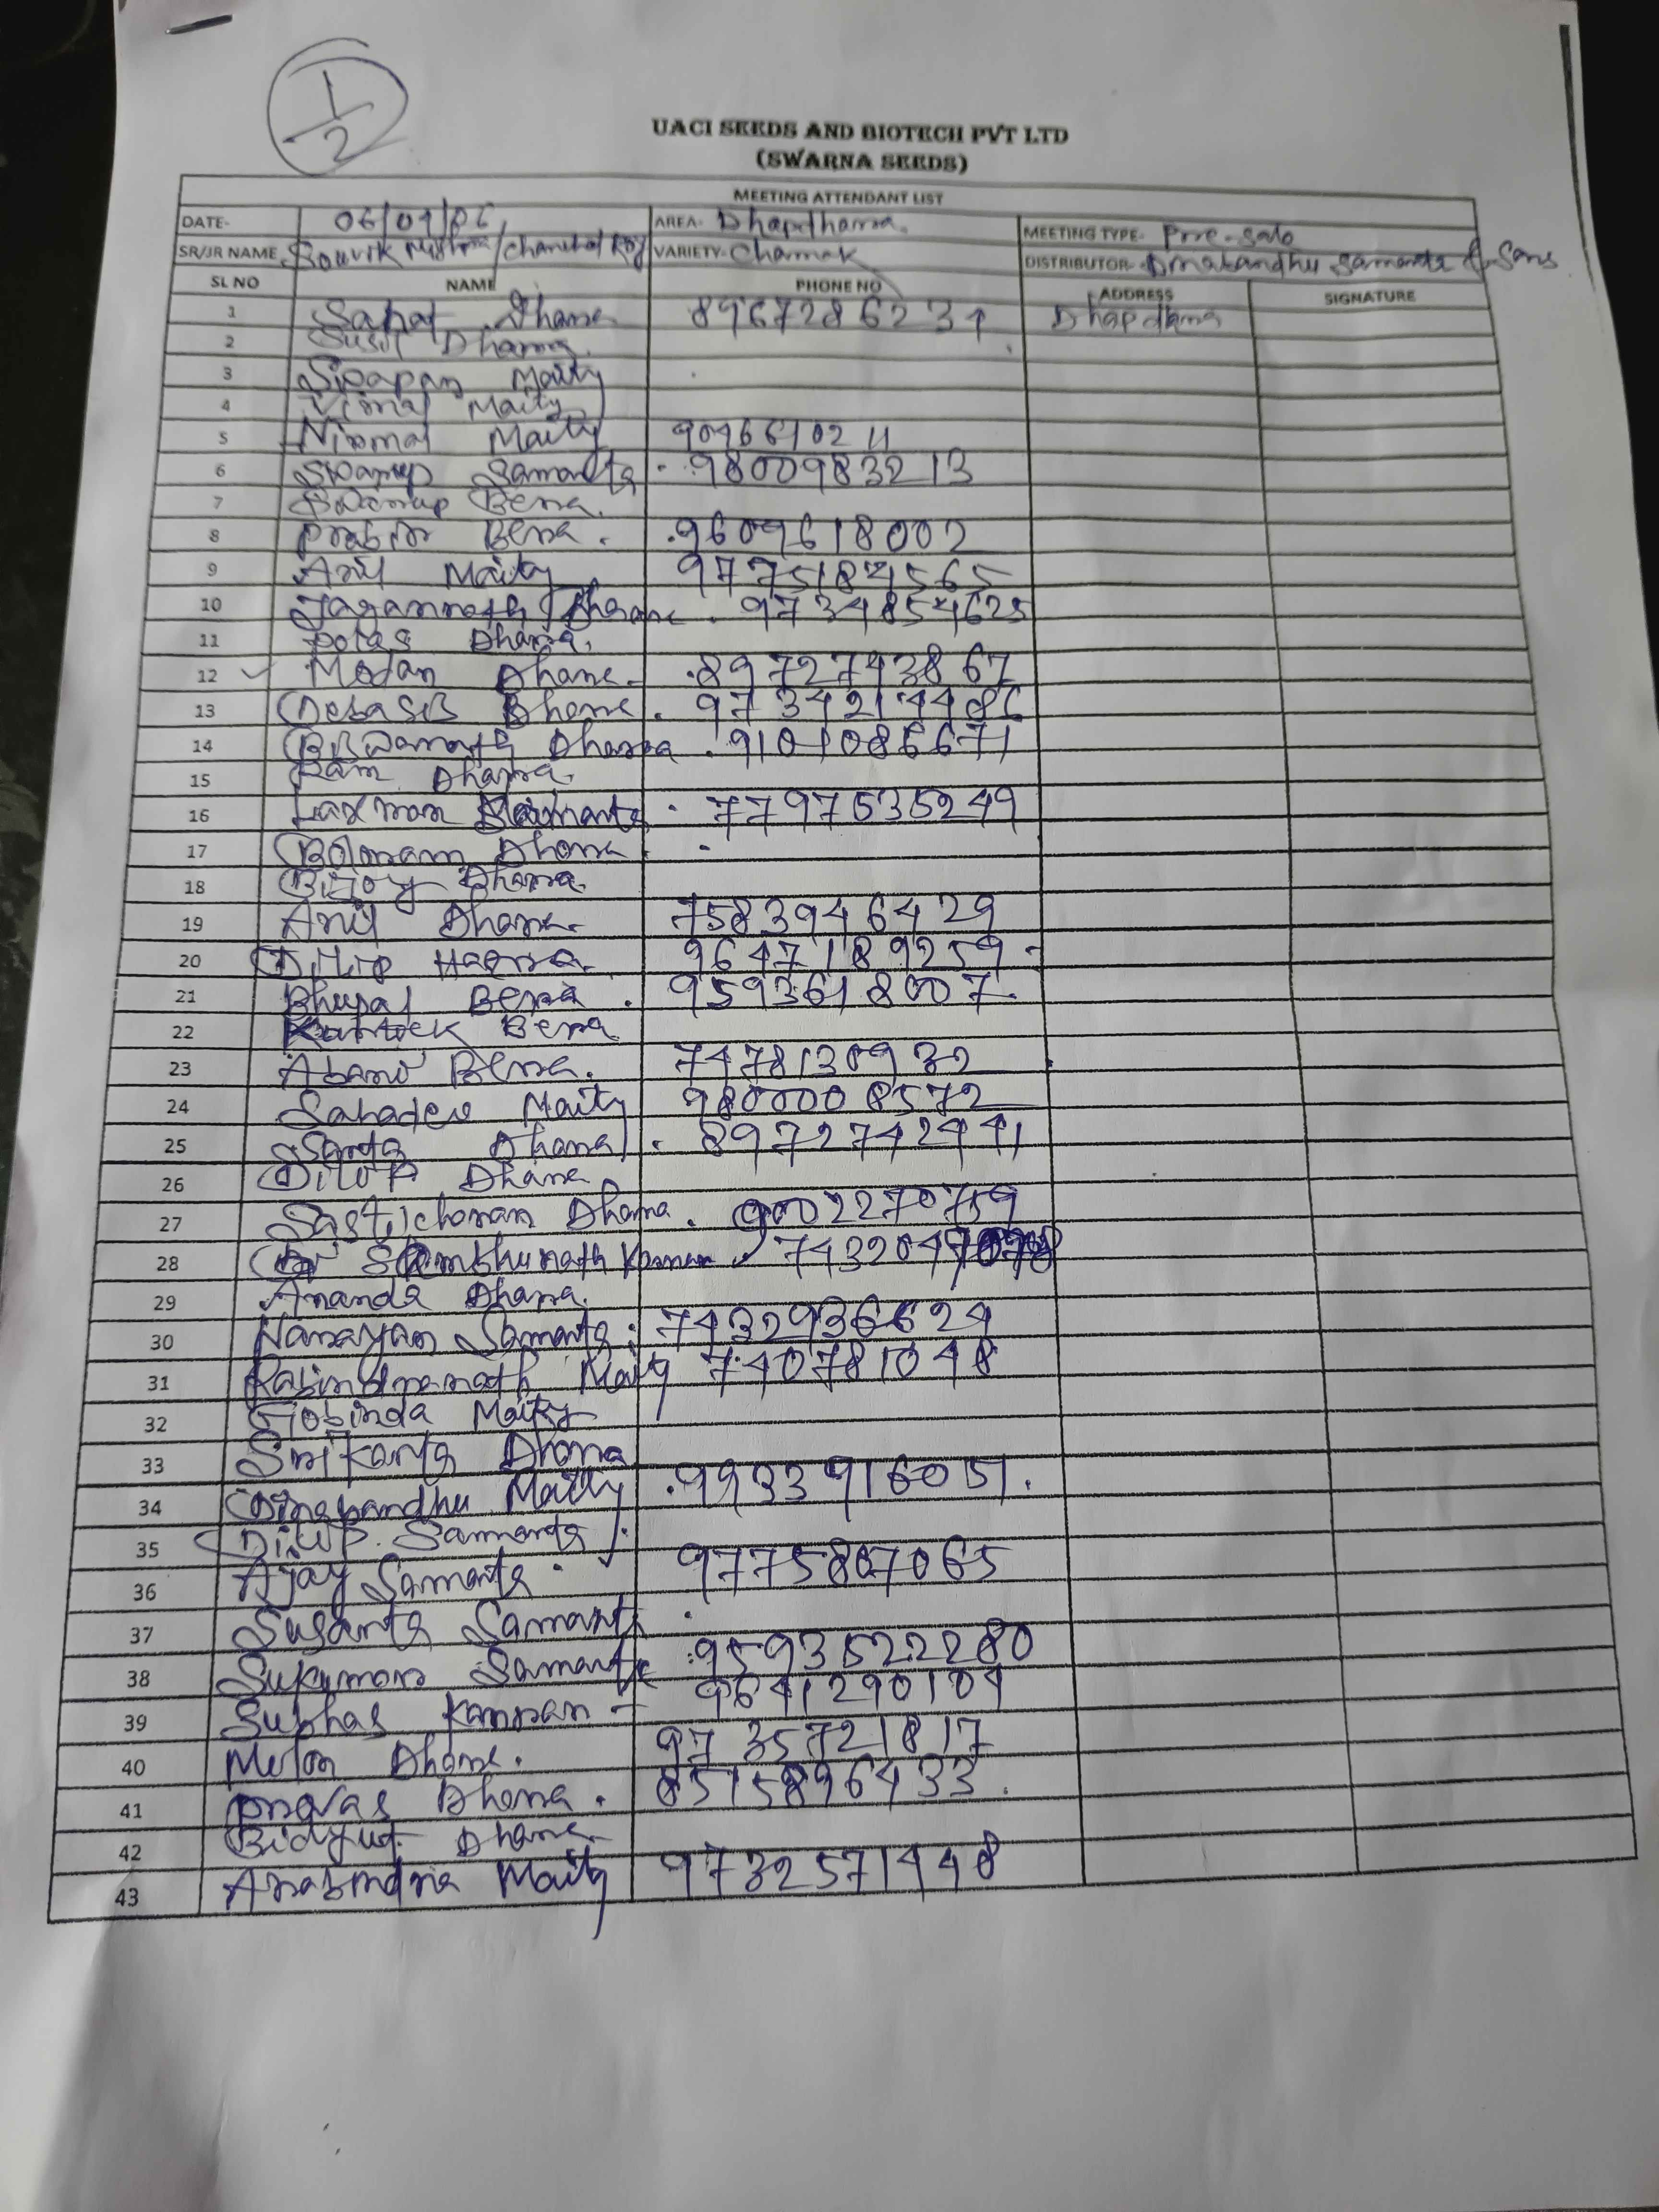 1/2
UACI SEEDS AND BIOTECH PVT LTD
(SWARNA SEEDS)
MEETING ATTENDANT LIST
DATE- AREA- MEETING TYPE- Prre-sale
SR/JR NAME Souvik VARIETY- Chamak DISTRIBUTOR- Samanta & Sons
SL NO NAME PHONE NO ADDRESS SIGNATURE
1 Dhapdhara
2 Susil Dhara.
3 Swapan Maity
4 Maity
5 Nirmal Maity
6 Swarup Samanta. 9800983213
7 Swarup Bera.
8 Prabir Bera. 9609618002
9 Anil Maity 9775184565
10 Jagannath Dhara. 9734854625
11 Dhara.
12 Modan Dhara. 8972743867
13 Debasis Dhara.
14 Biswanath Dhara. 9101086671
15 Ram Dhara.
16 Laxman Samanta. 7797535249
17 Boloram Dhara.
18 Bijoy Dhara.
19 Anil Dhara. 7583946429
20 Dilip Hazra. 9647189259
21 Bhupal Bera. 9593618007.
22 Kartick Bera
23 Abani Bera. 7478130932
24 Sahadev Maity 9800008572
25 Santa Dhara. 8972742441
26 Dilip Dhara
27 Sastticharan Dhara. 9002270759
28 Dr Sambhunath
29 Ananda Dhara.
30 Narayan Samanta. 7432936624
31 Rabindranath Maity 740781048
32 Gobinda Maity
33 Srikanta Dhara
34 Dinabandhu Maity. 9933916051.
35 Dilip Samanta.
36 Ajay Samanta. 9775807065
37 Susanta Samanta.
38 Sukumar Samanta. 9593522280
39 Subhas 9641290104
40 Melon Dhara. 9735721817
41 Provas Dhara. 8515896433.
42 Bidyut Dhara
43 Arabindra Maity 9732571448